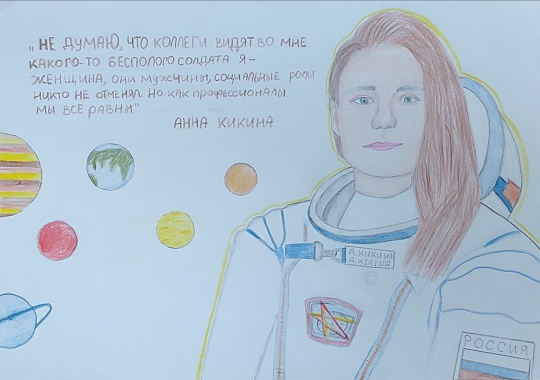 „НЕ ДУМАЮ, ЧТО КОЛЛЕГИ ВИДЯТ ВО МНЕ
КАКОГО-ТО БЕСПОЛОГО СОЛДАТА Я –
ЖЕНЩИНА, ОНИ МУЖЧИНЫ, СОЦИАЛЬНЫЕ РОЛИ
НИКТО НЕ ОТМЕНЯЛ. НО КАК ПРОФЕССИОНАЛЫ
МЫ ВСЕ РАВНЫ"
АННА КИКИНА
А.КИКИНА
A.KIKINA
РОССИЯ